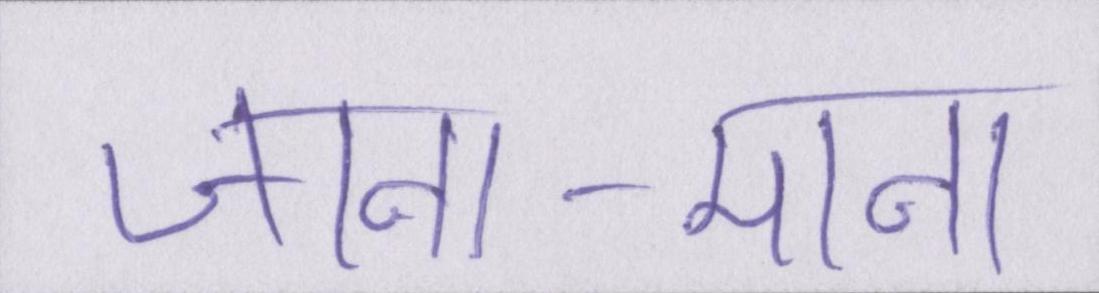 जाना-माना